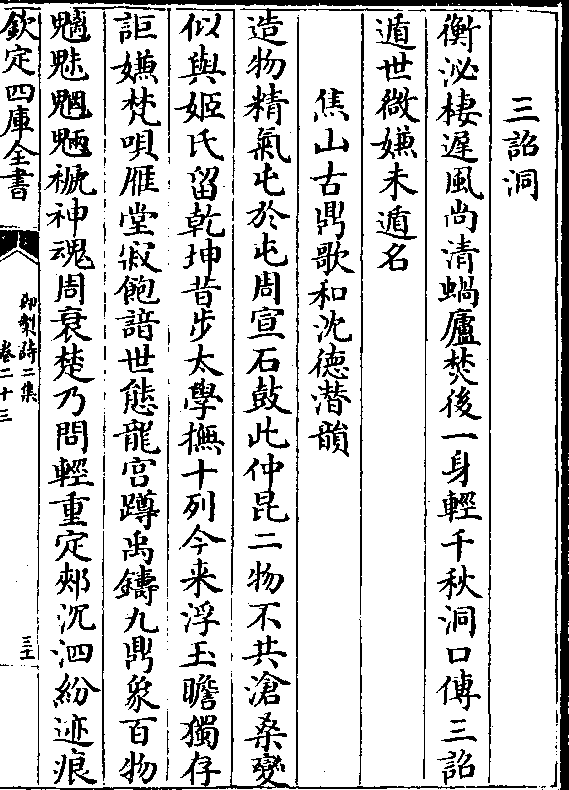 三詔洞
衡泌棲遲風尚清蝸廬焚後一身輕千秋洞口傳三詔
遁世微嫌未遁名
焦山古鼎歌和沈德潛韻
造物精氣屯於屯周宣石鼓此仲昆二物不共滄桑變
似與姬氏留乾坤昔步太學撫十列今来浮玉瞻獨存
詎嫌梵唄雁堂寂飽諳世態龍宮蹲禹鑄九鼎象百物
魑魅魍魎褫神魂周衰楚乃問輕重定郟沉泗紛迹痕
欽定四庫全書
御製詩二集
卷二十三
三十